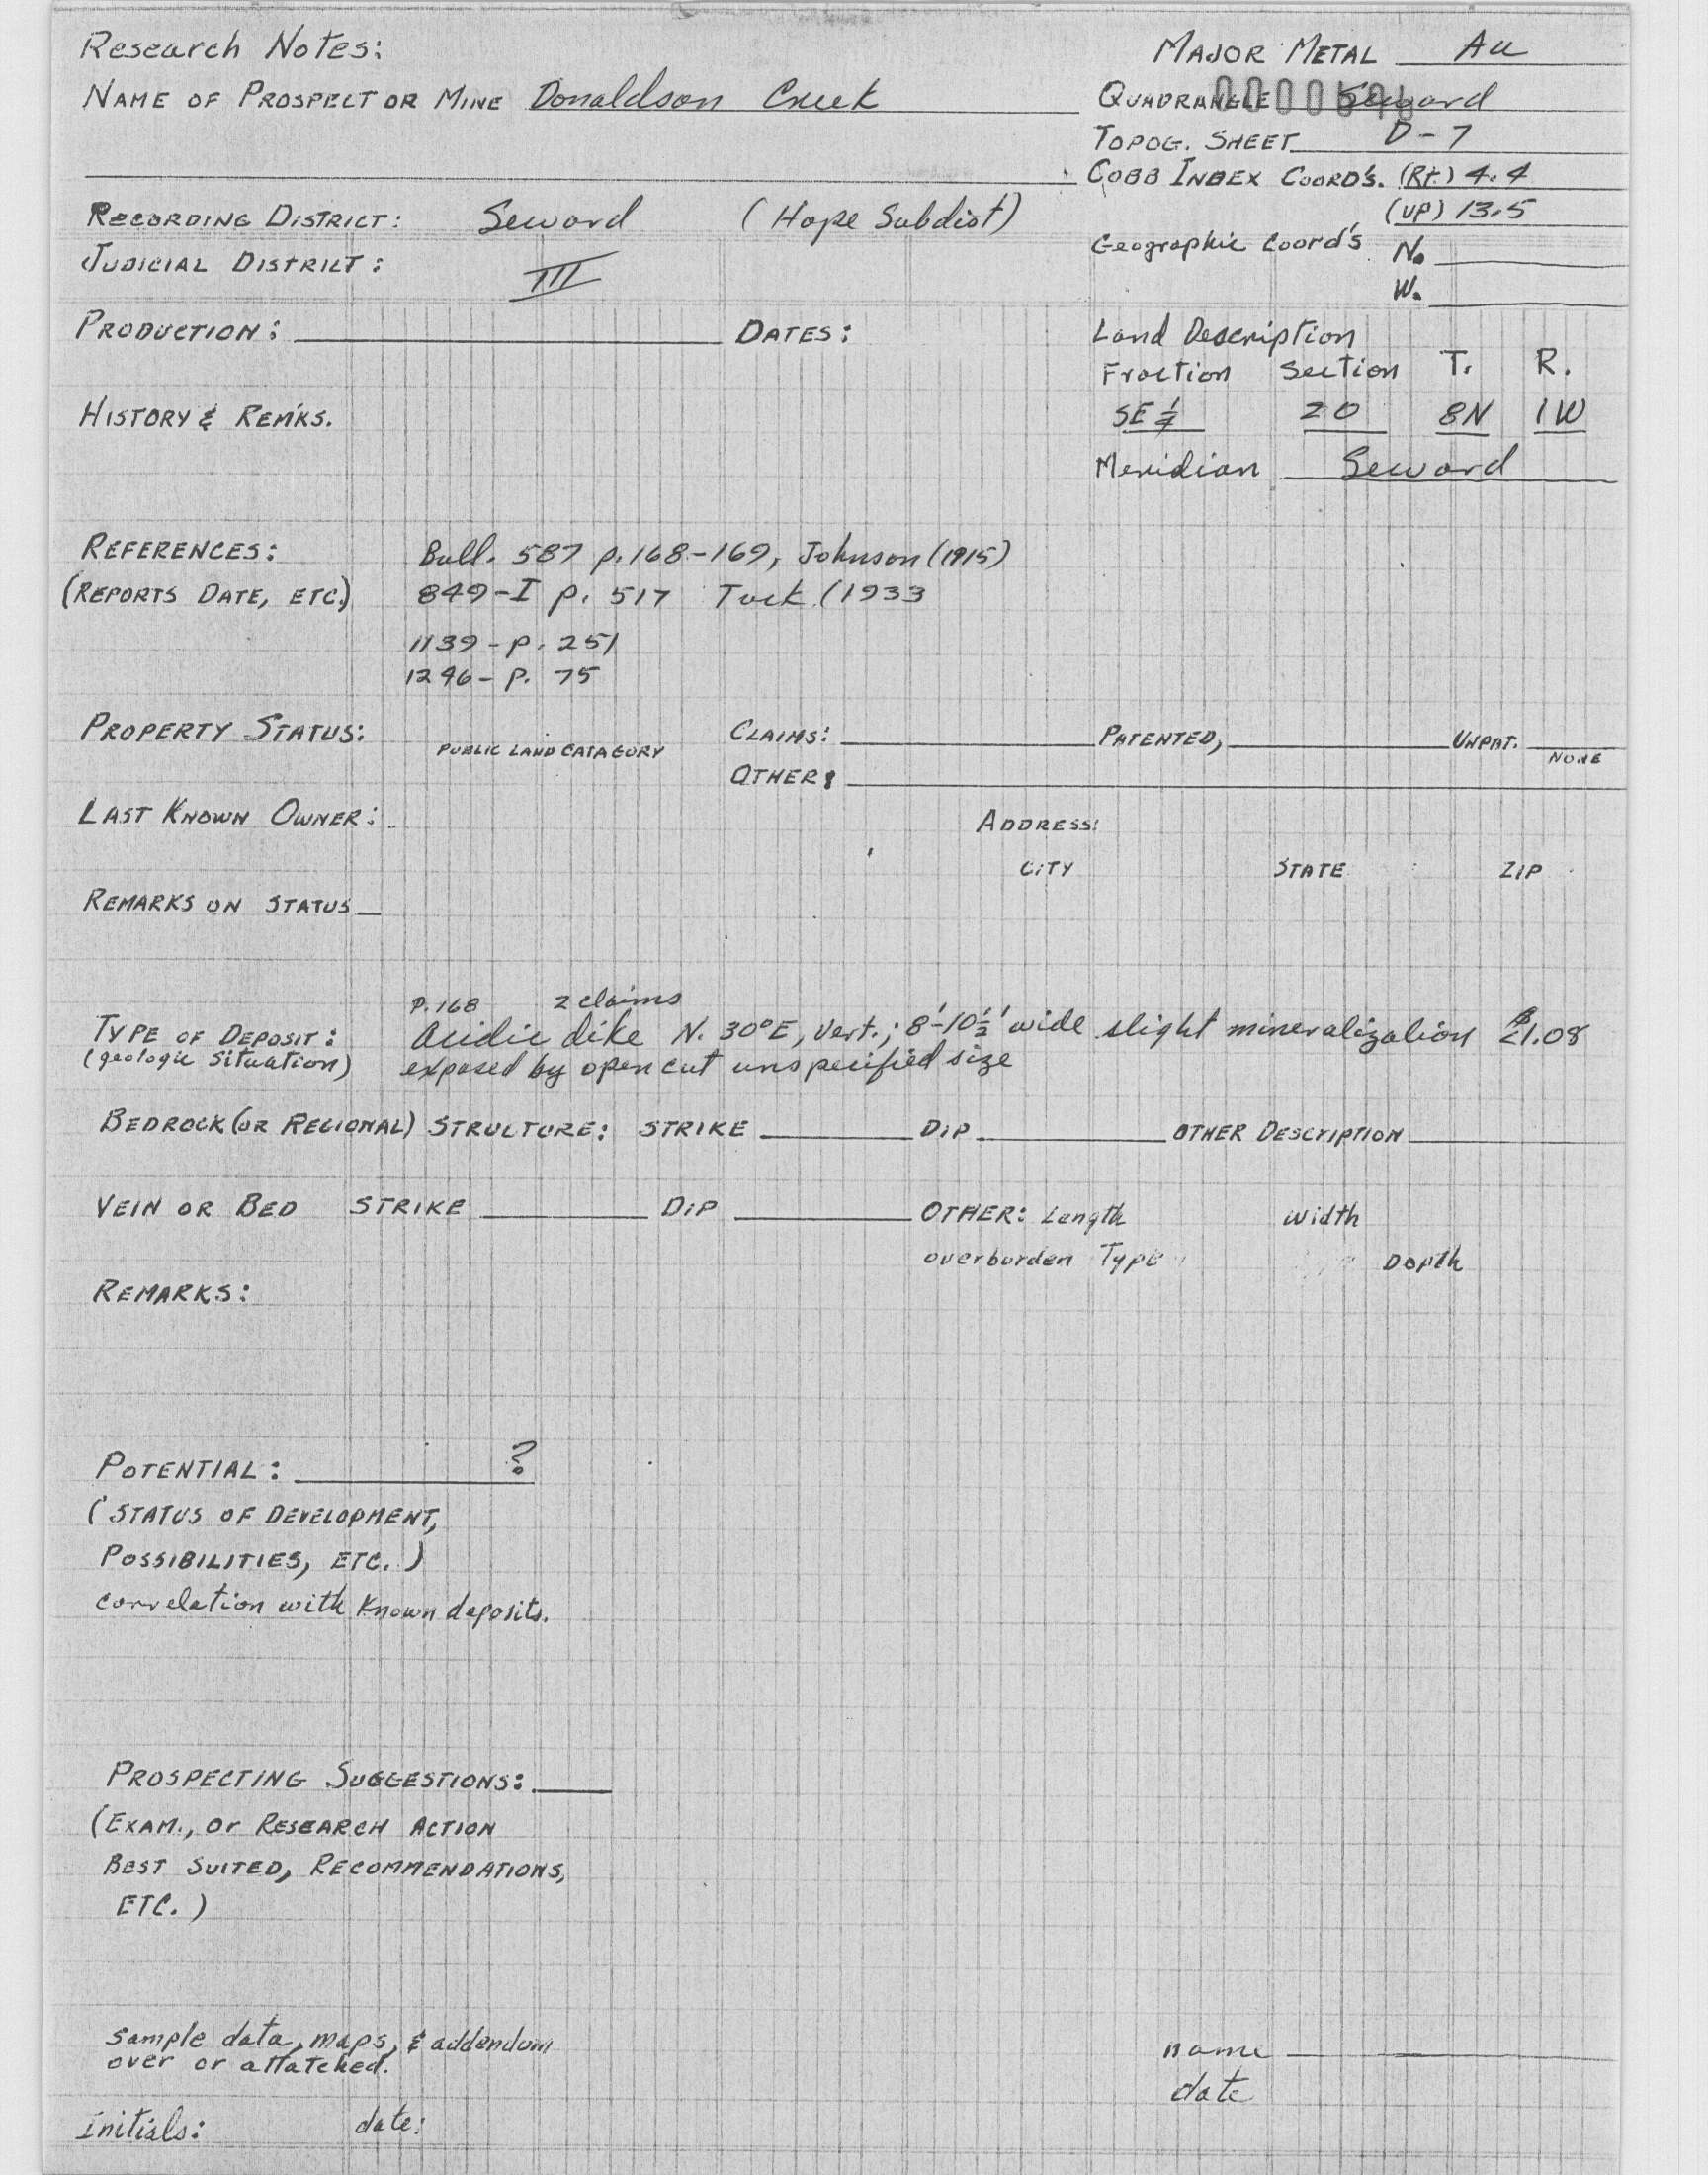 Research Notes: MAJOR METAL Au
NAME OF PROSPECT OR MINE Donaldson Creek QUADRANGLE Seward
TOPOG. SHEET D-7
COBB INDEX COORD'S. (Rt.) 4.4
(UP) 13.5
RECORDING DISTRICT: Seward (Hope Subdist)
Geographic Coord's N.
JUDICIAL DISTRICT: III
W.
PRODUCTION: DATES: Land Description
Fraction Section T. R.
HISTORY & REMKS. SE ¼ 20 8N 1W
Meridian Seward
REFERENCES: Bull. 587 p.168-169, Johnson (1915)
(REPORTS DATE, ETC.) 849-I p. 517 Tuck (1933
1139 - p. 251
1246 - p. 75
PROPERTY STATUS: PUBLIC LAND CATAGORY CLAIMS: PATENTED, UNPAT.
NONE
OTHER:
LAST KNOWN OWNER: ADDRESS:
CITY STATE ZIP
REMARKS ON STATUS
p.168 2 claims
TYPE OF DEPOSIT: acidic dike N. 30°E, Vert.; 8'-10½' wide slight mineralization $1.08
(geologic situation) exposed by open cut unspecified size
BEDROCK (OR REGIONAL) STRUCTURE: STRIKE DIP OTHER DESCRIPTION
VEIN OR BED STRIKE DIP OTHER: Length Width
overburden Type Depth
REMARKS:
POTENTIAL: ?
(STATUS OF DEVELOPMENT,
POSSIBILITIES, ETC.)
correlation with known deposits.
PROSPECTING SUGGESTIONS:
(EXAM., or RESEARCH ACTION
BEST SUITED, RECOMMENDATIONS,
ETC.)
sample data, maps, & addendum
over or attatched.
name
date
Initials: date: